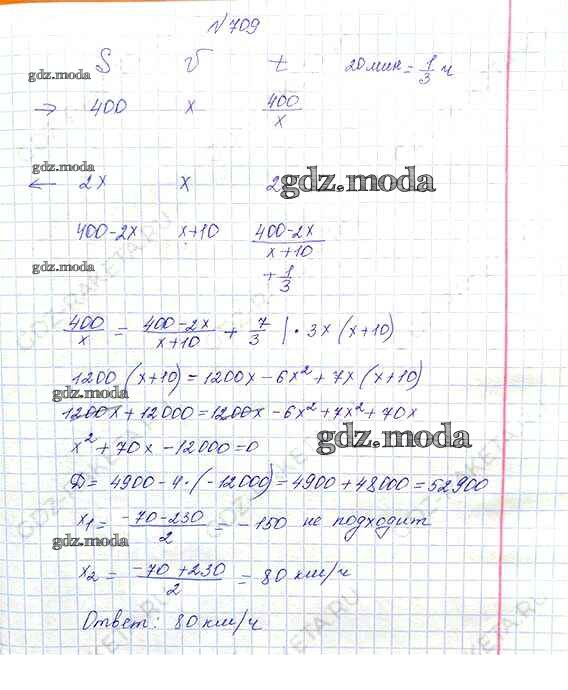 №709
S V t 20 мин = 1/3 ч
gdz.moda
→ 400 x 400/x
gdz.moda
← 2x x 2
gdz.moda
400-2x x+10 (400-2x)/(x+10)
+ 1/3
gdz.moda
400/x = (400-2x)/(x+10) + 7/3 | · 3x (x+10)
1200 (x+10) = 1200x - 6x² + 7x (x+10)
gdz.moda
1200x + 12000 = 1200x - 6x² + 7x² + 70x
x² + 70x - 12000 = 0
gdz.moda
Д = 4900 - 4·(-12000) = 4900 + 48000 = 52900
x₁ = (-70-230)/2 = -150 не подходит
gdz.moda
x₂ = (-70+230)/2 = 80 км/ч
Ответ: 80 км/ч
gdz.moda
GDZ-RAKETA.RU
GDZ-RAKETA.RU